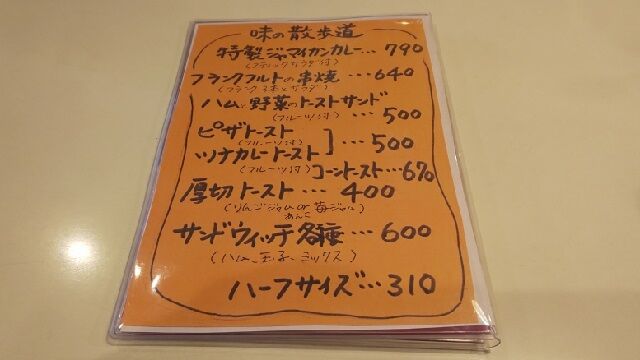 味の散歩道
特製ジャマイカンカレー…790
フランクフルトの串焼…640
ハムと野菜のトーストサンド
(フルーツ付)…500
ピザトースト
(フルーツ付)
]…500
ツナカレートースト
(フルーツ付)
コーントースト…670
厚切トースト…400
(りんごジャム or 苺ジャム)
あんこ
サンドウィッチ各種…600
(ハム、玉子、ミックス)
ハーフサイズ…310